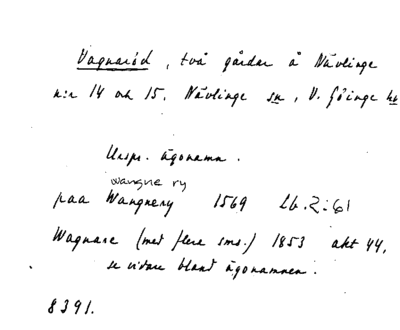 Vagnaröd, två gårdar å Nävlinge
n:r 14 och 15. Nävlinge sn, V. Göinge hd
Urspr. ägonamn.
wangne ry
paa Wangnery 1569 Lb. 2:61
Wagnare (med flere sms.) 1853 akt 44,
se vidare bland ägonamnen.
8391.